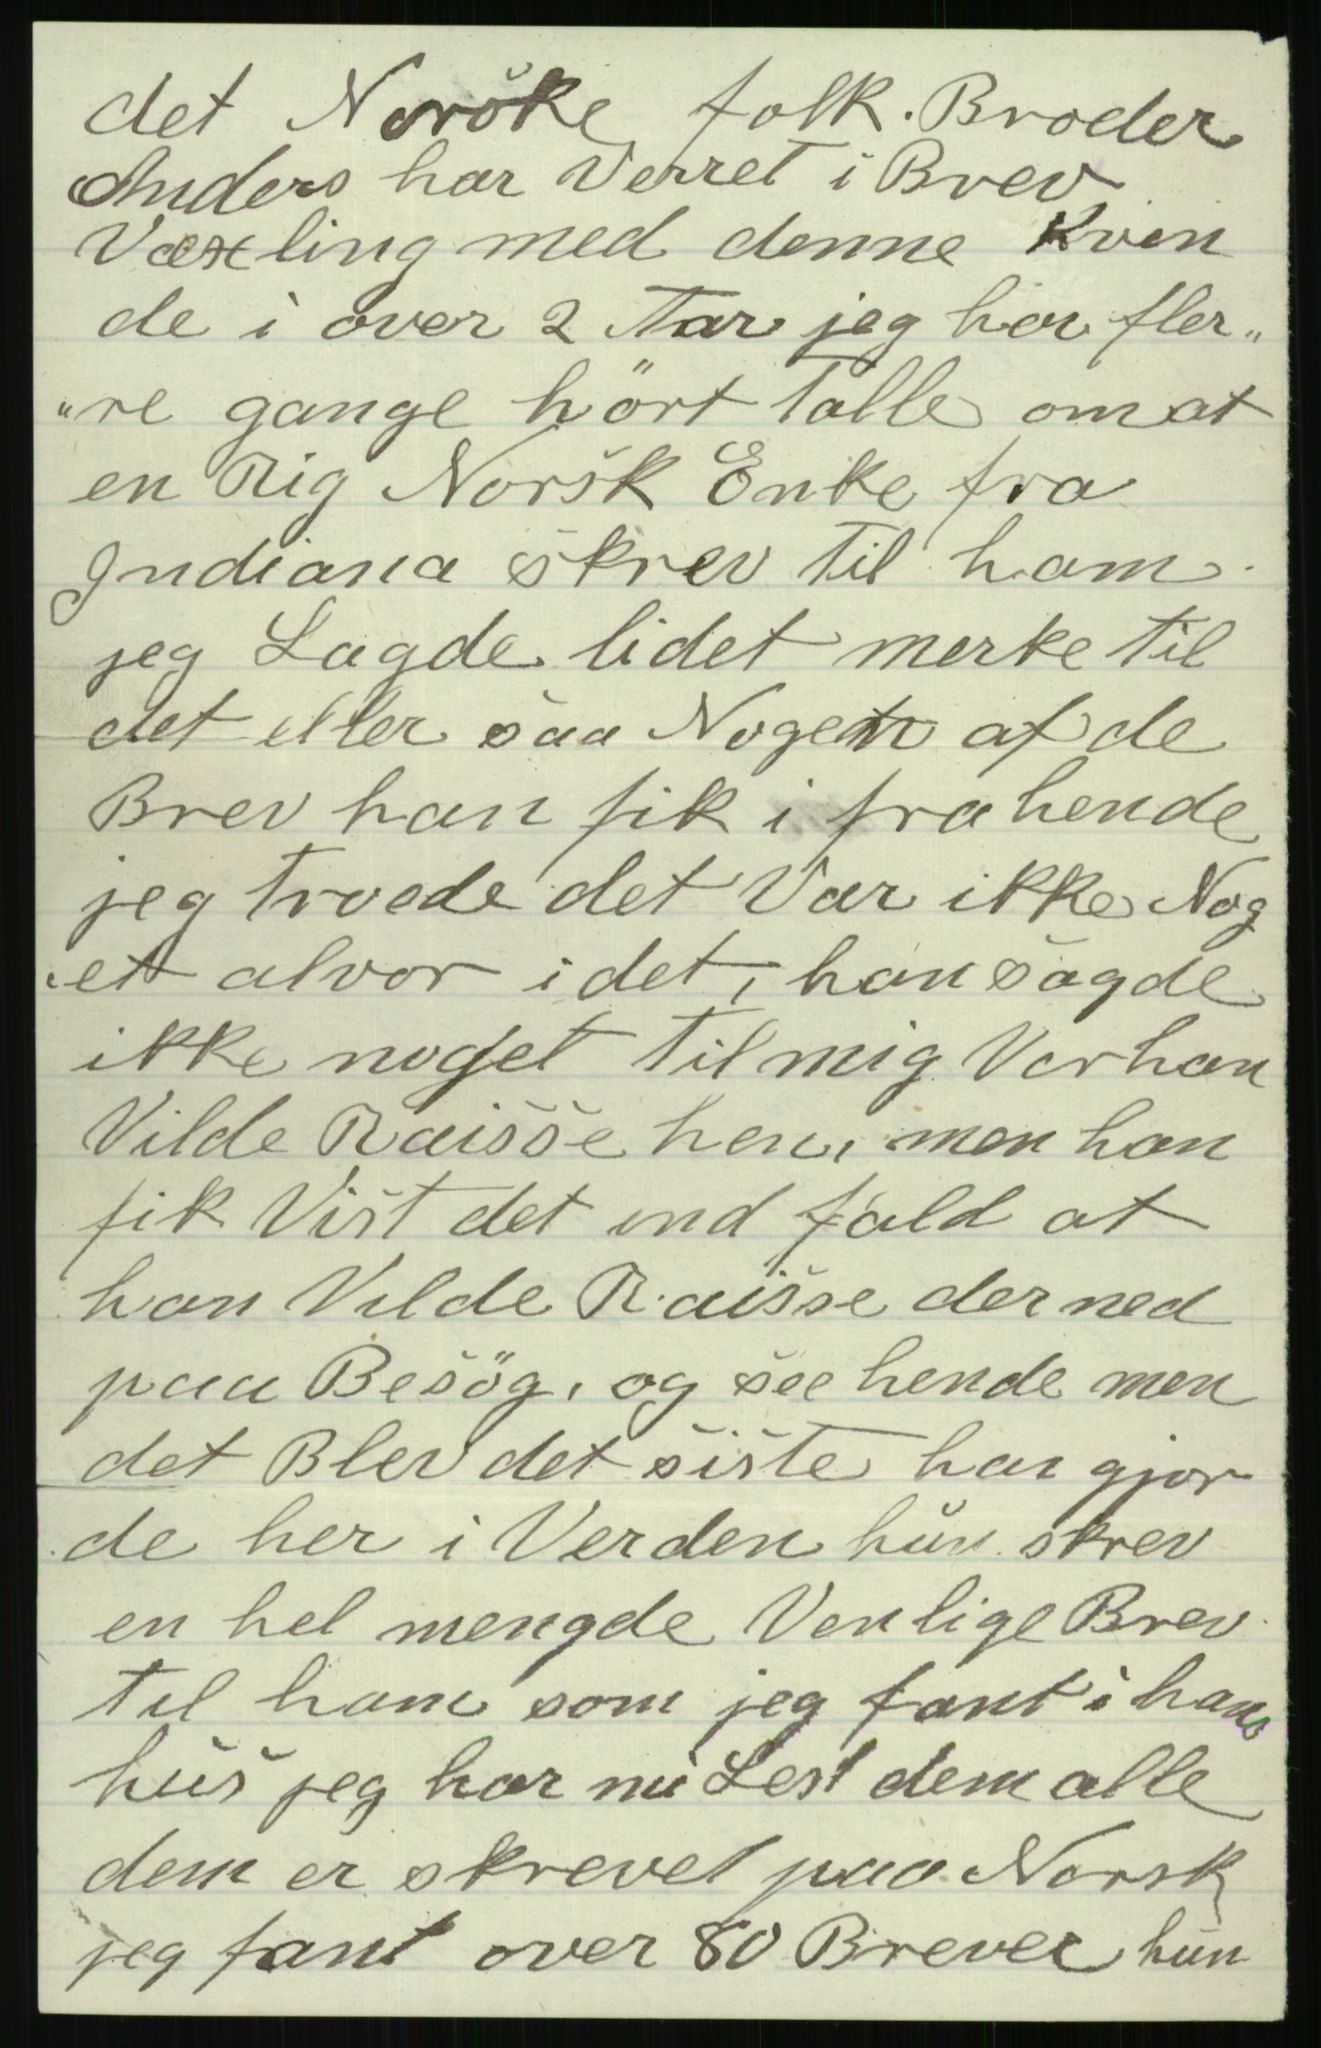 det Norske folk. Broder
Anders har Verret i Brev
Væxling med denne Kvin
de i over 2 Aar jeg har fler„
„re gange hört Talle om at
en Rig Norsk Enke fra
Indiana skrev til ham.
jeg Lagde lidet merke til
det eller saa Nogen af de
Brev han fik i fra hende
jeg troede det Var ikke Nog
et alvor i det, han sagde
ikke noget til mig Vor han
Vilde Raisse hen, men han
fik Vist det ind fald at
han Vilde Raisse der ned
paa Besög, og see hende men
det Blev det siste han gjor
de her i Verden hun skrev
en hel mengde Venlige Brev
til ham som jeg fant i hans
hus jeg har nu Lest dem alle
dem er skrevet paa Norsk
jeg fant over 80 Brever hun